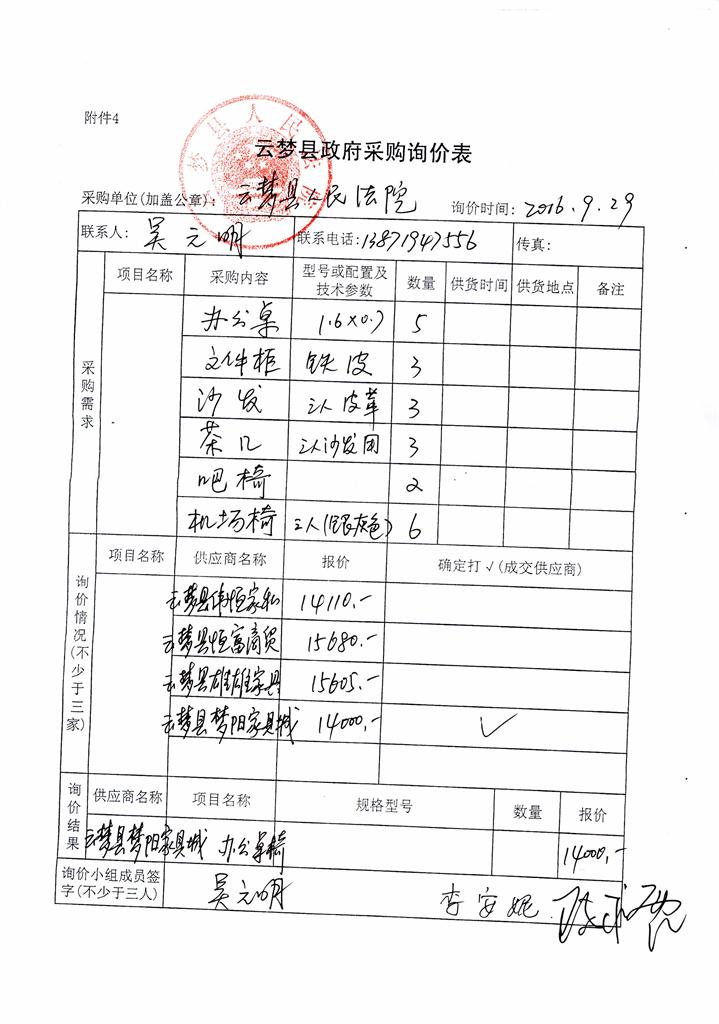 附件4
云梦县政府采购询价表
采购单位(加盖公章): 云梦县人民法院 询价时间: 2016.9.29
联系人: 吴元明 联系电话: 13871947556 传真:
采购需求
项目名称 采购内容 型号或配置及技术参数 数量 供货时间 供货地点 备注
办公桌 1.6×0.7 5
文件柜 铁皮 3
沙发 三人皮革 3
茶几 三人沙发用 3
吧椅 2
机场椅 三人(银灰色) 6
询价情况(不少于三家)
项目名称 供应商名称 报价 确定打√(成交供应商)
云梦县伟恒家私 14110.-
云梦县恒富商贸 15680.-
云梦县雄雄家具 15605.-
云梦县梦阳家具城 14000.- √
询价结果
供应商名称 项目名称 规格型号 数量 报价
云梦县梦阳家具城 办公桌椅 14000.-
询价小组成员签字(不少于三人) 吴元明 李安妮